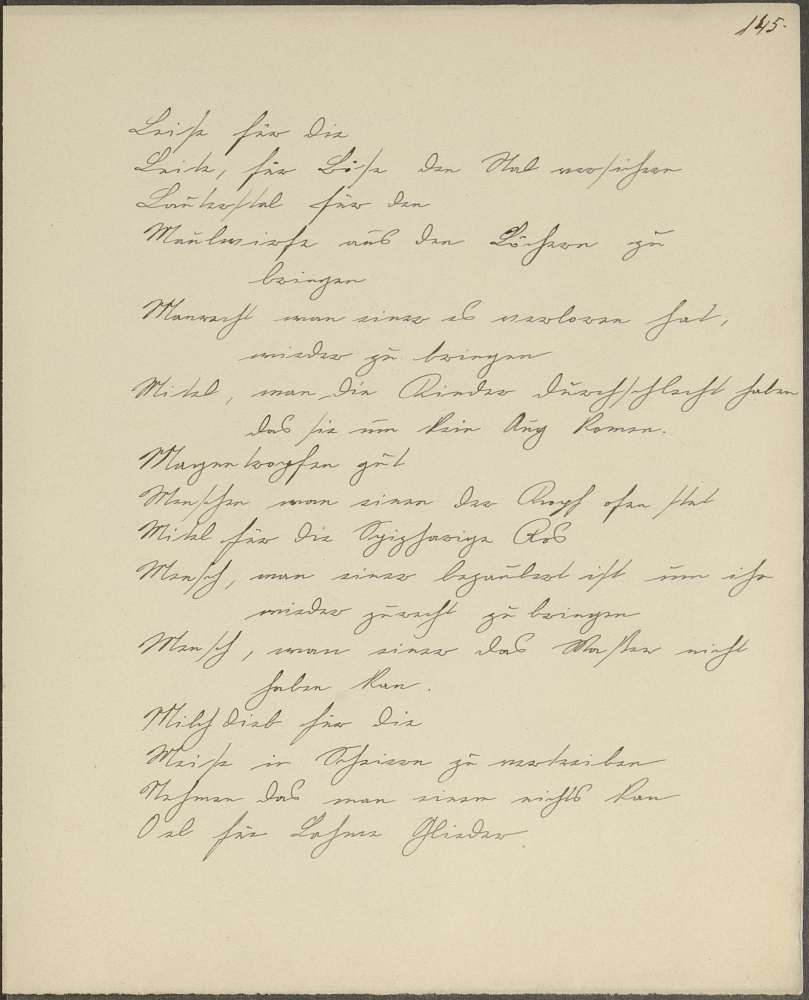 145.
Leise für die
Leite, für Böse den Stal versichern
Lauterstal für den
Maulwirfe aus den Löchern zu
bringen
Manrecht wan einer es verloren hat,
wieder zu bringen
Mitel, wan die Kinder Durchschlecht haben
das sie um kein Aug komen.
Magentropfen gut
Menschen wan einen der Kropf ofen stet
Mitel für die Spizharige Ros
Mensch, wan einer bezaubert ist um ihn
wieder zurecht zu bringen
Mensch, wan einer das Waßer nicht
haben kan.
Milchdieb für die
Meise in Scheiern zu vertreiben
Nehmen das man einem nichts kan
Oel für Lahme Glieder.